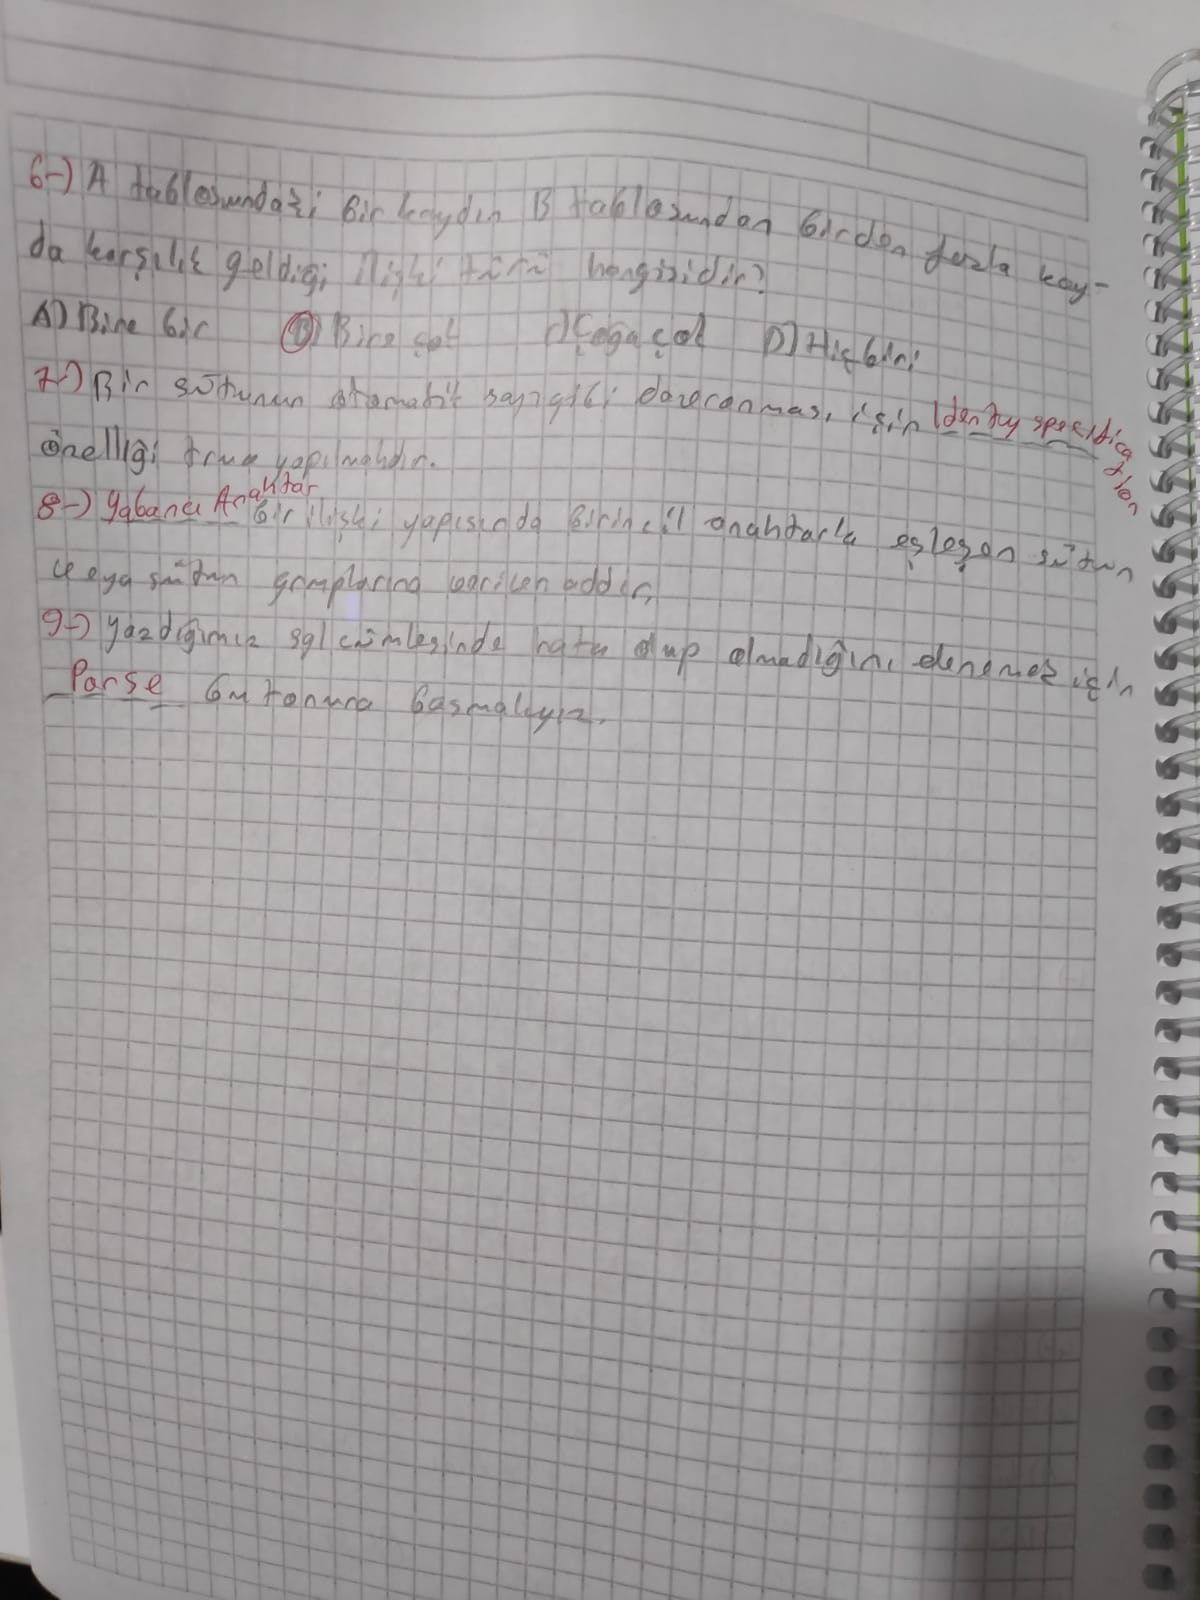 6-) A tablosundaki bir kaydın B tablosundan birden fazla kay-
da karşılık geldiği ilişki türü hangisidir?
A) Bire bir B) Bire çok C) Çoğa çok D) Hiçbiri
7-) Bir sütunun otomatik sayı gibi davranması için Identity specifica
tion
özelliği true yapılmalıdır.
8-) Yabancı Anahtar bir ilişki yapısında birincil anahtarla eşleşen sütun
veya sütun gruplarına verilen addır
9-) Yazdığımız sql cümlesinde hata olup olmadığını denemek için
Parse butonuna basmalıyız.